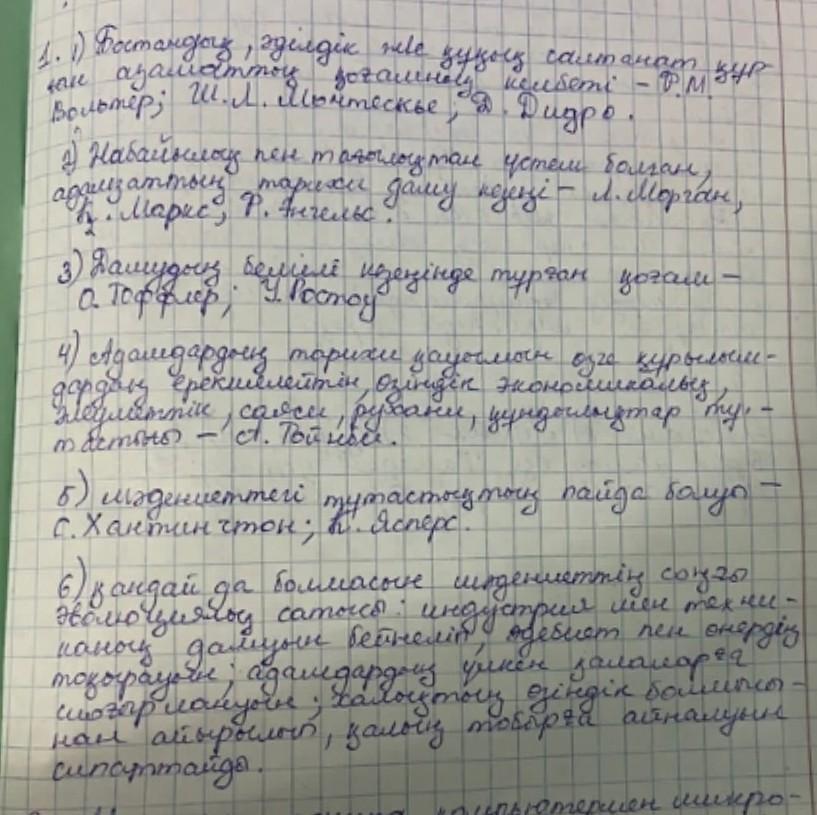 1. 1) Бостандық, әділдік және құқық салтанат құр
ған азаматтық қоғамның келбеті – Ф.М.
Вольтер; Ш.Л. Монтескье; Д. Дидро.
2) Жабайылық пен тағылықтан үстем болған,
адамзаттың тарихи даму кезеңі – Л. Морган,
К. Маркс, Ф. Энгельс.
3) Дамудың белгілі кезеңінде тұрған қоғам –
О. Тоффлер; У. Ростоу
4) Адамдардың тарихи қауымын өзге құрылым-
дардың ерекшелейтін, өзіндік экономикалық,
әлеуметтік, саяси, рухани, құндылықтар тұ-
тастығы – А. Тойнби.
5) мәдениеттегі тұтастықтың пайда болуы –
С. Хантингтон; К. Ясперс.
6) қандай да болмасын мәдениеттің соңғы
эволюциялық сатысы: индустрия мен техни-
каның дамуын бейнелеп, әдебиет пен өнердің
тоқырауын; адамдардың үлкен қалаларға
шоғырлануын; халықтың өзіндік болмысы-
нан айырылып, қалың тобырға айналуын
сипаттайды.
компьютермен микро-